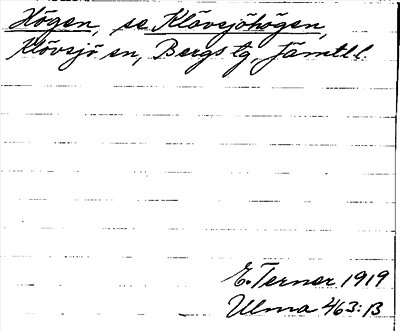 Högen, se Klövsjöhögen,
Klövsjö sn, Bergs tg, Jämtl. l.
E. Terner 1919
Ulma 463:B